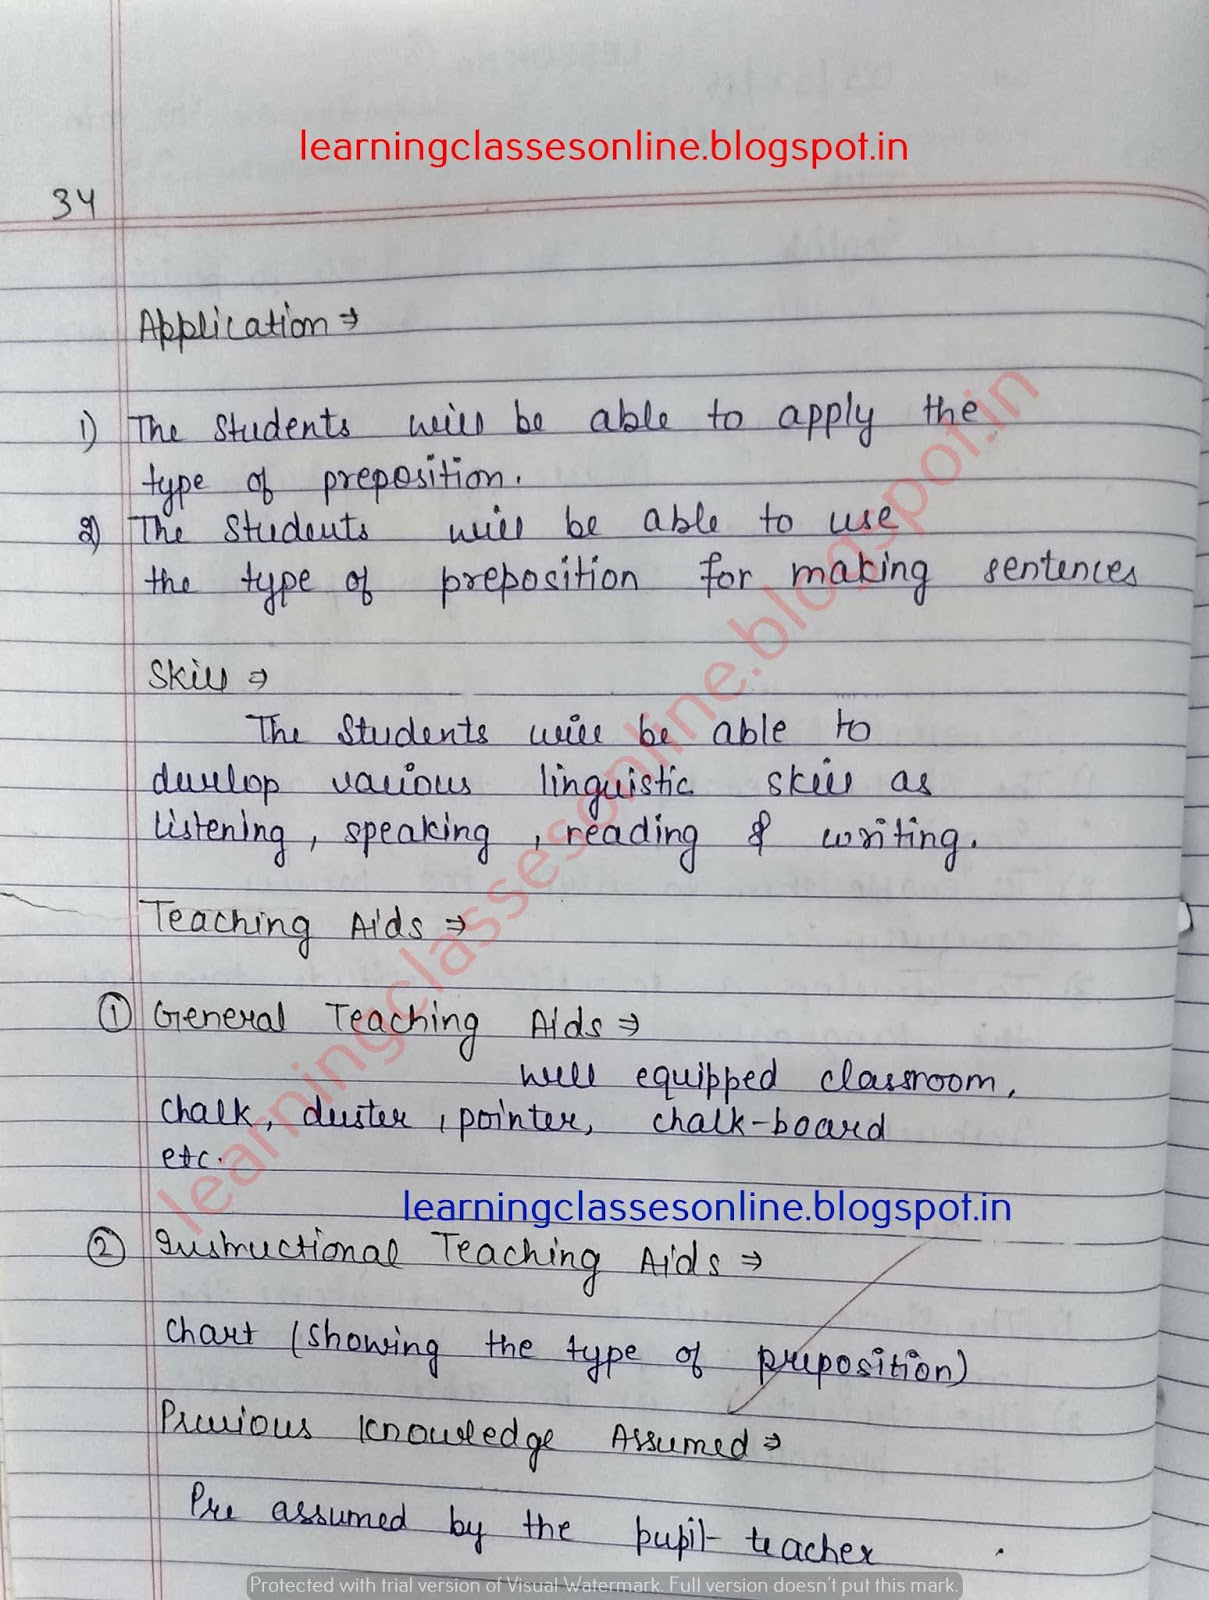 learningclassesonline.blogspot.in
34
Application ⇒
1) The Students will be able to apply the
type of preposition.
2) The Students will be able to use
the type of preposition for making sentences
Skill ⇒
The Students will be able to
develop various linguistic skill as
listening, speaking, reading & writing.
Teaching Aids ⇒
① General Teaching Aids ⇒
well equipped classroom,
chalk, duster, pointer, chalk-board
etc.
learningclassesonline.blogspot.in
learningclassesonline.blogspot.in
② Instructional Teaching Aids ⇒
Chart (showing the type of preposition)
Previous Knowledge Assumed ⇒
Pre assumed by the pupil-teacher.
Protected with trial version of Visual Watermark. Full version doesn't put this mark.